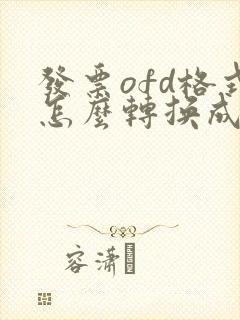 發票ofd格式
怎麼轉換成
容瀟